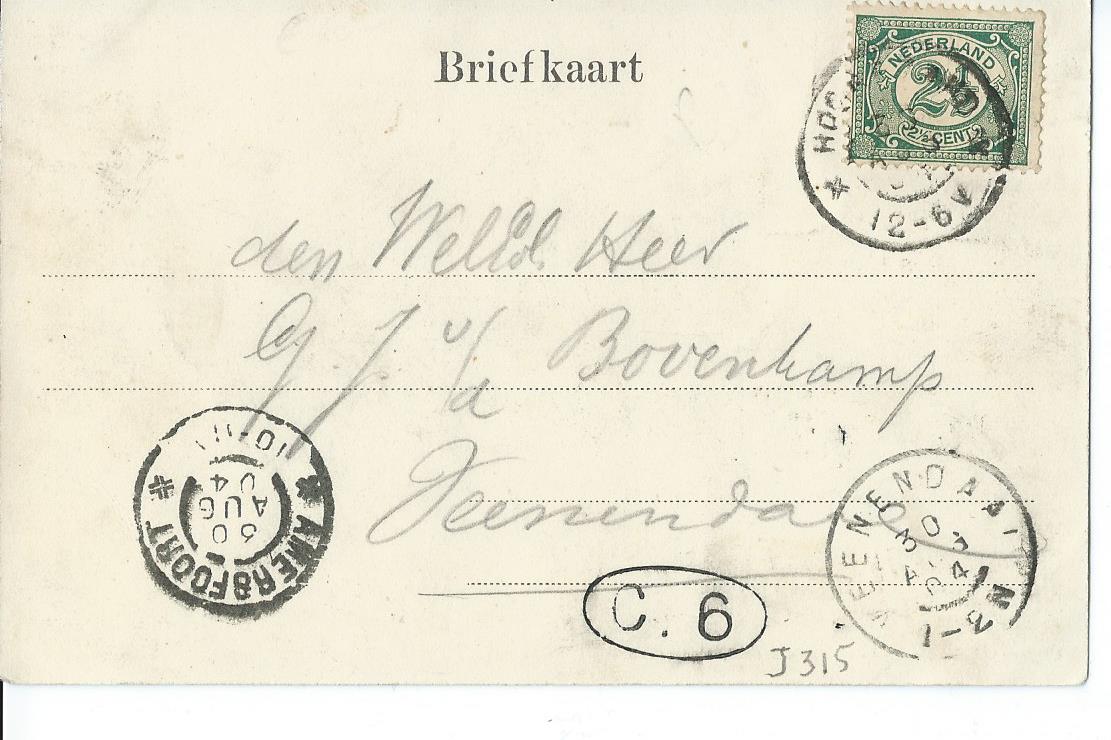 Briefkaart
NEDERLAND
2½
2½ CENT
12-6V
den WelEd. Heer
G. J. v/d Bovenkamp
Veenendaal
AMERSFOORT
30
AUG
04
VEENENDAAL
30
04
1-3N
C. 6
J315